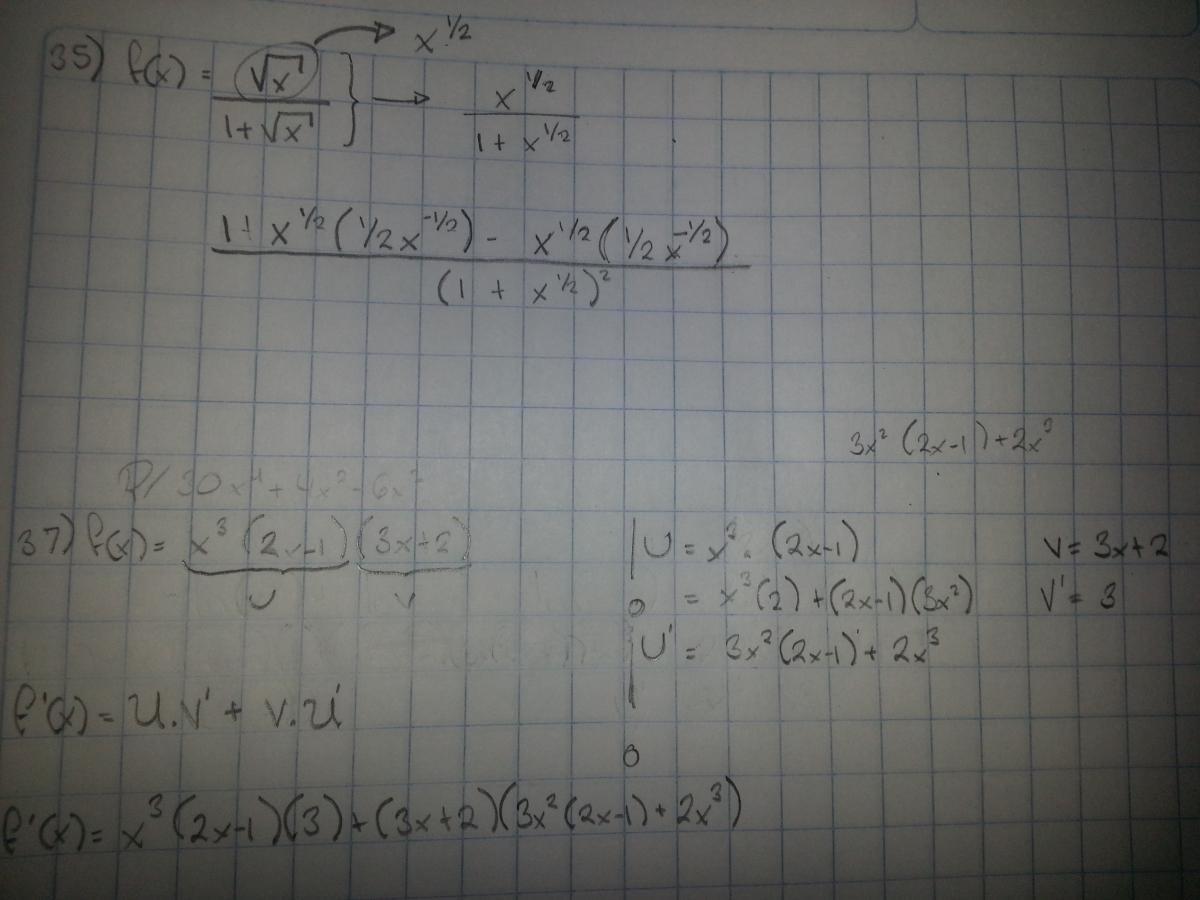 35) f(x) = √x / 1+√x } → x^1/2 / 1 + x^1/2
x^1/2
1 + x^1/2 (1/2 x^-1/2) - x^1/2 (1/2 x^-1/2) / (1 + x^1/2)²
3x² (2x-1) + 2x³
R/ 30x⁴ + 4x³ - 6x²
37) f(x) = x³ (2x-1) (3x+2)
U V
U = x³ · (2x-1) V = 3x+2
= x³(2) + (2x-1)(3x²) V' = 3
U' = 3x²(2x-1) + 2x³
f'(x) = U.V' + V.U'
f'(x) = x³ (2x-1)(3) + (3x+2)(3x²(2x-1) + 2x³)